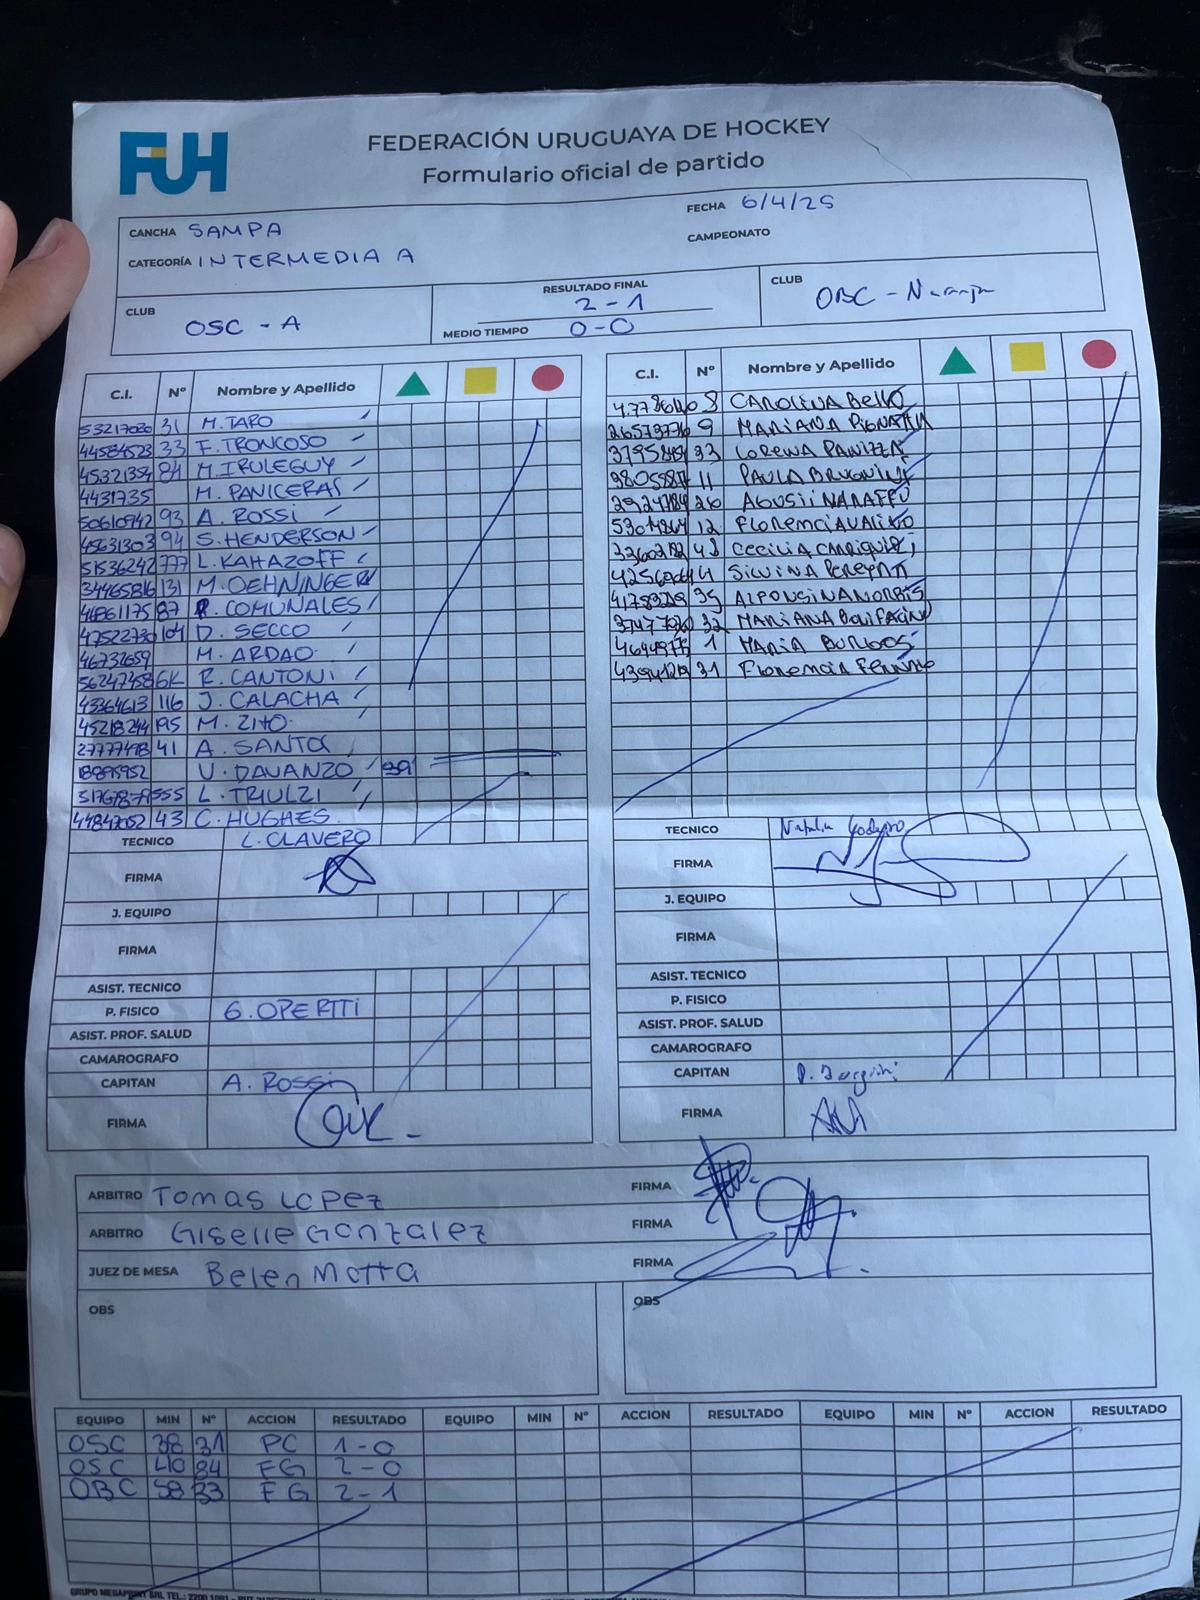 FUH
FEDERACIÓN URUGUAYA DE HOCKEY
Formulario oficial de partido
CANCHA SAMPA
FECHA 6/4/25
CATEGORÍA INTERMEDIA A
CAMPEONATO
CLUB OSC - A
RESULTADO FINAL 2-1
MEDIO TIEMPO 0-0
CLUB OBC - Naranja
C.I. Nº Nombre y Apellido
53217030 31 M. TARO
44584523 33 F. TRONCOSO
45321354 84 M. IRULEGUY
4431735 M. PANICERAS
50610942 93 A. ROSSI
45631303 94 S. HENDERSON
51536242 777 L. KAHAZOFF
34465816 131 M. OEHNINGER
44861175 87 COMUNALES
47522730 104 D. SECCO
46732659 M. ARDAO
56247458 6K R. CANTONI
43364613 116 J. CALACHA
45218244 195 M. ZITO
27777498 41 A. SANTA
V. DAVANZO
555 L. TRIULZI
43 C. HUGHES
TECNICO L. CLAVERO
FIRMA
J. EQUIPO
FIRMA
ASIST. TECNICO
P. FISICO G. OPERTTI
ASIST. PROF. SALUD
CAMAROGRAFO
CAPITAN A. ROSSI
FIRMA
C.I. Nº Nombre y Apellido
8 CAROLINA BELLO
9 MARIANA
33 LORENA PANIZZA
11 PAULA
26 AGUSTINA
12 FLORENCIA
CECILIA
SILVINA PEREYRA
35 ALFONSINA
32 MARIANA BONIFACINO
1 MARIA BURGOS
31 FLORENCIA
TECNICO Natalia
FIRMA
J. EQUIPO
FIRMA
ASIST. TECNICO
P. FISICO
ASIST. PROF. SALUD
CAMAROGRAFO
CAPITAN P.
FIRMA
ARBITRO Tomas Lopez FIRMA
ARBITRO Giselle Gonzalez FIRMA
JUEZ DE MESA Belen Motta FIRMA
OBS
OBS
EQUIPO MIN Nº ACCION RESULTADO EQUIPO MIN Nº ACCION RESULTADO EQUIPO MIN Nº ACCION RESULTADO
OSC 38 31 PC 1-0
OSC 40 84 FG 2-0
OBC 58 33 FG 2-1